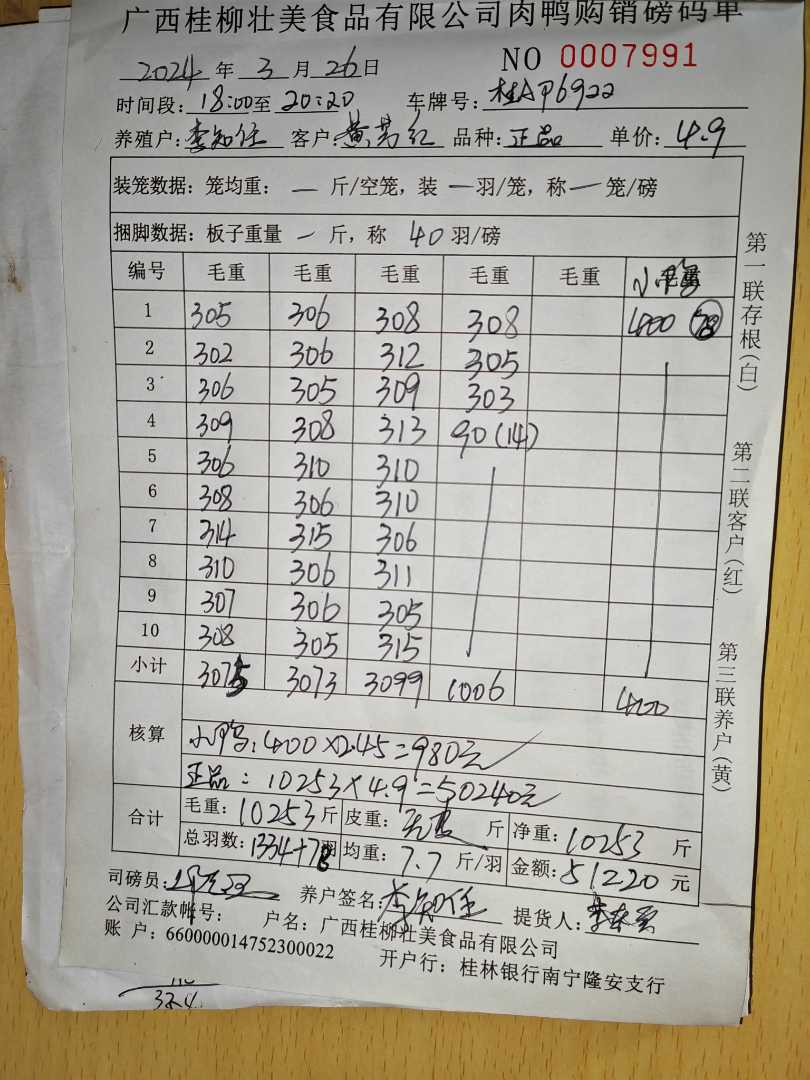 广西桂柳壮美食品有限公司肉鸭购销磅码单
2024 年 3 月 26 日 NO 0007991
时间段: 18:00 至 20:20 车牌号: 桂AP6922
养殖户: 李知任 客户: 品种: 正品 单价: 4.9
装笼数据: 笼均重: 一 斤/空笼, 装 一 羽/笼, 称 一 笼/磅
捆脚数据: 板子重量 一 斤, 称 40 羽/磅
编号 毛重 毛重 毛重 毛重 毛重 小鸭
1 305 306 308 308 400 (78)
2 302 306 312 305
3 306 305 309 303
4 309 308 313 90(14)
5 306 310 310
6 308 306 310
7 314 315 306
8 310 306 311
9 307 306 305
10 308 305 315
小计 3075 3073 3099 1006 400
核算
小鸭: 400×2.45=980元
正品: 10253×4.9=50240元
合计
毛重: 10253 斤 皮重: 斤 净重: 10253 斤
总羽数: 1334+78 羽 均重: 7.7 斤/羽 金额: 51220 元
司磅员: 养户签名: 李知任 提货人:
公司汇款帐号: 户名: 广西桂柳壮美食品有限公司
账 户: 660000014752300022 开户行: 桂林银行南宁隆安支行
第一联存根(白)
第二联客户(红)
第三联养户(黄)